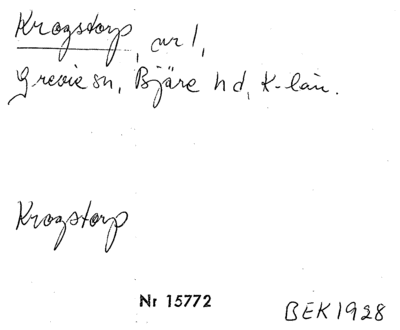 Krogstorp, nr 1,
Grevie sn, Bjäre hd, K-län.
Krogstorp
Nr 15772
BEK 1928